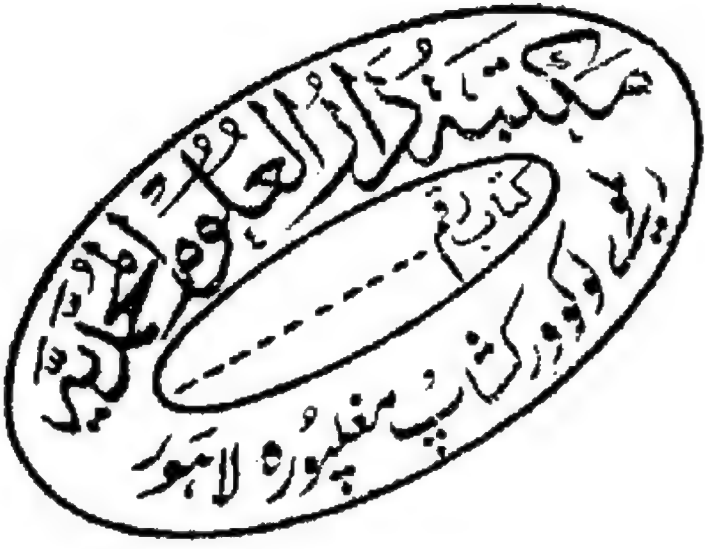 مكتبة دار العلوم المحمدية
كتاب رقم
ریلوے لوکوورکشاپ مغلپورہ لاہور